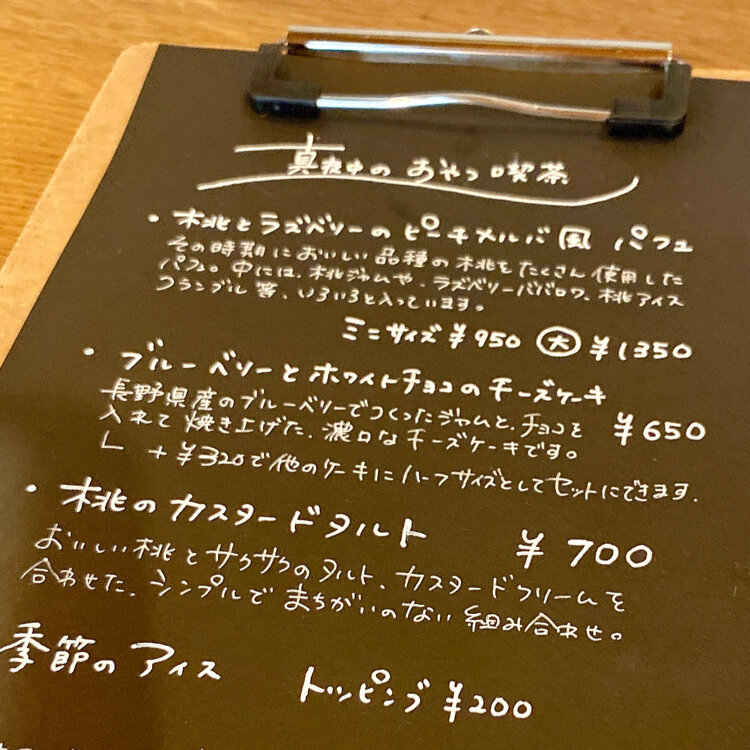 真夜中のおやつ喫茶
・桃とラズベリーのピーチメルバ風 パフェ
その時期においしい品種の桃をたくさん使用した
パフェ。中には、桃ジャムや、ラズベリーババロワ、桃アイス
クランブル等、いろいろと入っています。
ミニサイズ ¥950 大 ¥1350
・ブルーベリーとホワイトチョコのチーズケーキ
長野県産のブルーベリーでつくったジャムと、チョコを
入れて焼き上げた、濃口なチーズケーキです。
¥650
└ +¥320で他のケーキにハーフサイズとしてセットにできます.
・桃のカスタードタルト ¥700
おいしい桃とサクサクのタルト、カスタードクリームを
合わせた、シンプルでまちがいのない組み合わせ。
季節のアイス トッピング ¥200